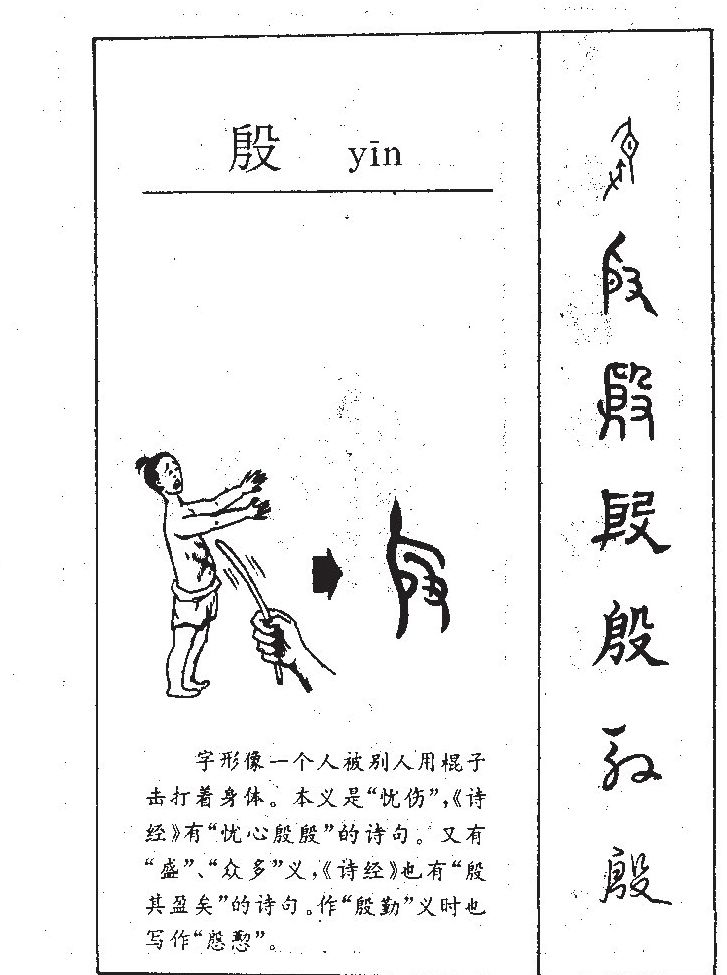 殷 yīn
字形像一个人被别人用棍子
击打着身体。本义是“忧伤”,《诗
经》有“忧心殷殷”的诗句。又有
“盛”、“众多”义,《诗经》也有“殷
其盈矣”的诗句。作“殷勤”义时也
写作“慇懃”。